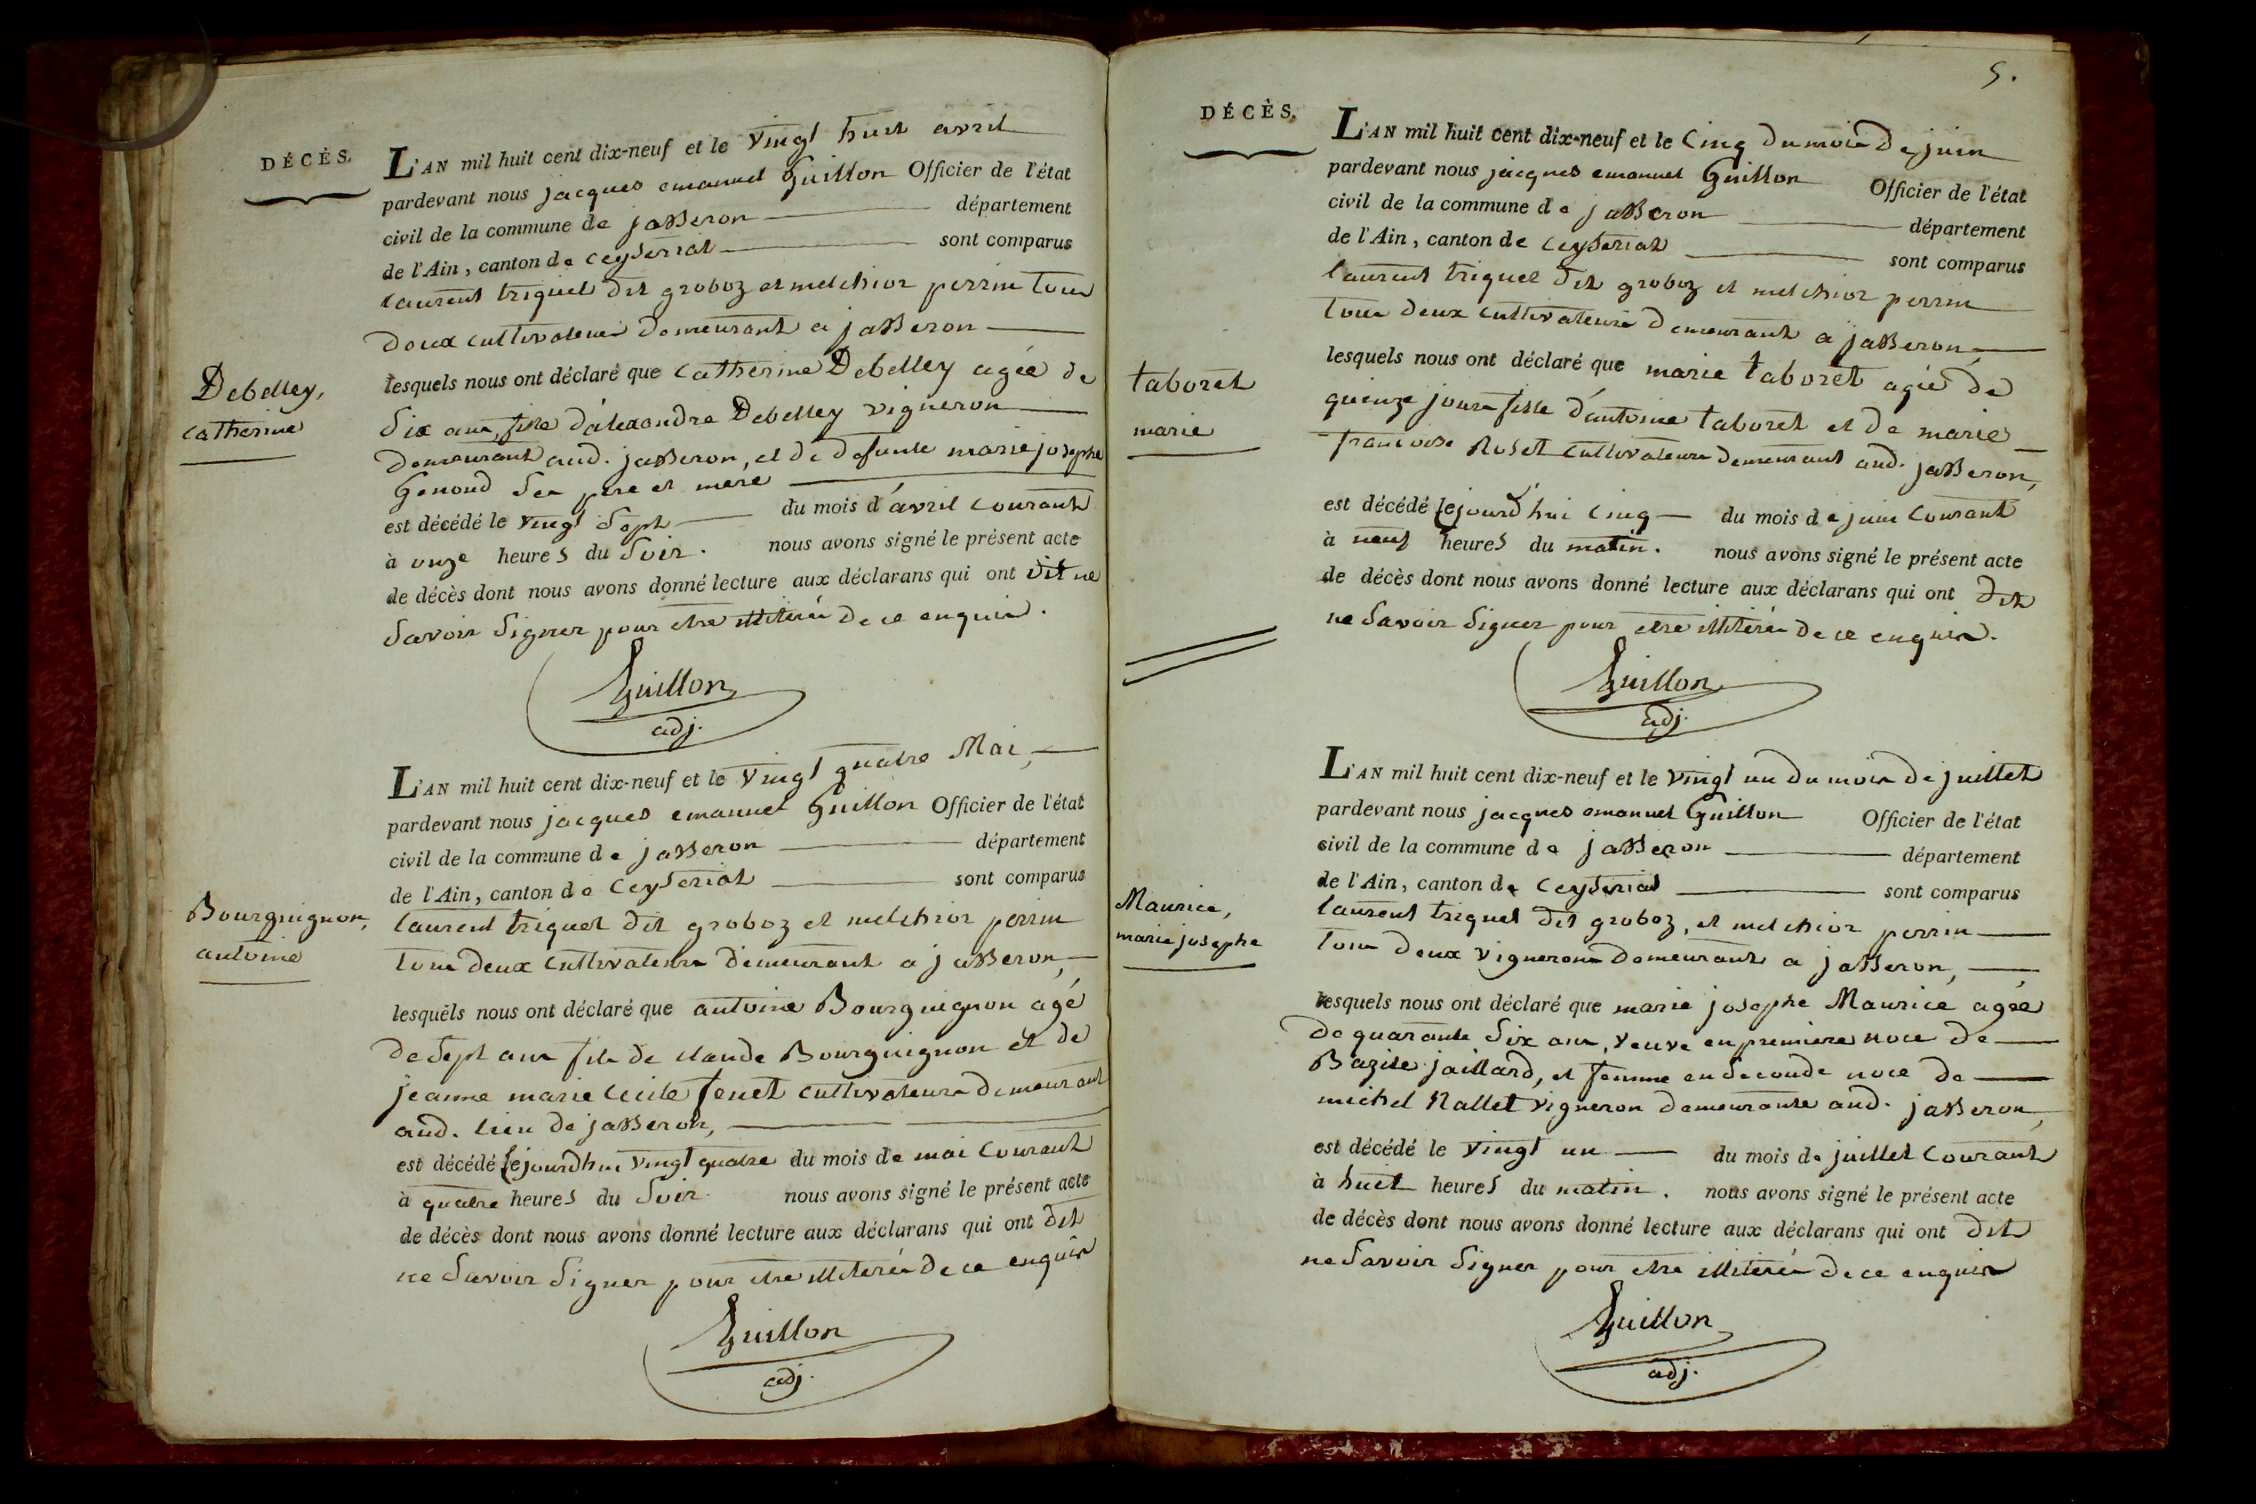 DÉCÈS.
L'AN mil huit cent dix-neuf et le vingt huit avril
pardevant nous jacques emanuel Guillon Officier de l'état
civil de la commune de jasseron département
de l'Ain, canton de Ceyseriat sont comparus
laurent triquet dit groboz et melchior perrin tous
deux cultivateurs demeurant a jasseron
Debelley,
catherine
lesquels nous ont déclaré que catherine Debelley agée de
six ans, fille d'alexandre Debelley vigneron
demeurant aud. jasseron, et de defunte marie josephe
Genoud ses pere et mere
est décédé le vingt sept du mois d'avril courant
à onze heures du soir. nous avons signé le présent acte
de décès dont nous avons donné lecture aux déclarans qui ont dit ne
savoir signer pour etre illiterés de ce enquis.
Guillon
adj.
L'AN mil huit cent dix-neuf et le vingt quatre Mai,
pardevant nous jacques emanuel Guillon Officier de l'état
civil de la commune de jasseron département
de l'Ain, canton de Ceyseriat sont comparus
Bourguignon,
antoine
laurent triquet dit groboz et melchior perrin
tous deux cultivateurs demeurant a jasseron,
lesquels nous ont déclaré que antoine Bourguignon agé
de sept ans fils de claude Bourguignon et de
jeanne marie Cecile fenet cultivateurs demeurant
aud. lieu de jasseron,
est décédé cejourdhui vingt quatre du mois de mai courant
à quatre heures du soir. nous avons signé le présent acte
de décès dont nous avons donné lecture aux déclarans qui ont dit
ne savoir signer pour etre illiterés de ce enquis
Guillon
adj.
5.
DÉCÈS.
L'AN mil huit cent dix-neuf et le cinq du mois de juin
pardevant nous jacques emanuel Guillon Officier de l'état
civil de la commune de jasseron département
de l'Ain, canton de ceyseriat sont comparus
laurent triquet dit groboz et melchior perrin
tous deux cultivateurs demeurant a jasseron,
taboret
marie
lesquels nous ont déclaré que marie taboret agée de
quinze jours fille d'antoine taboret et de marie
francoise Roset cultivateurs demeurant aud. jasseron,
est décédé cejourd'hui cinq du mois de juin courant
à neuf heures du matin. nous avons signé le présent acte
de décès dont nous avons donné lecture aux déclarans qui ont dit
ne savoir signer pour etre illiterés de ce enquis.
Guillon
adj.
L'AN mil huit cent dix-neuf et le vingt un du mois de juillet
pardevant nous jacques emanuel Guillon Officier de l'état
civil de la commune de jasseron département
de l'Ain, canton de Ceyseriat sont comparus
Maurice,
marie josephe
laurent triquet dit groboz, et melchior perrin
tous deux vignerons demeurant a jasseron,
lesquels nous ont déclaré que marie josephe Maurice agée
de quarante six ans, veuve en premiere noce de
Bazile jaillard, et femme en seconde noce de
michel Nallet vigneron demeurante aud. jasseron,
est décédé le vingt un du mois de juillet courant
à huit heures du matin. nous avons signé le présent acte
de décès dont nous avons donné lecture aux déclarans qui ont dit
ne savoir signer pour etre illiterés de ce enquis
Guillon
adj.